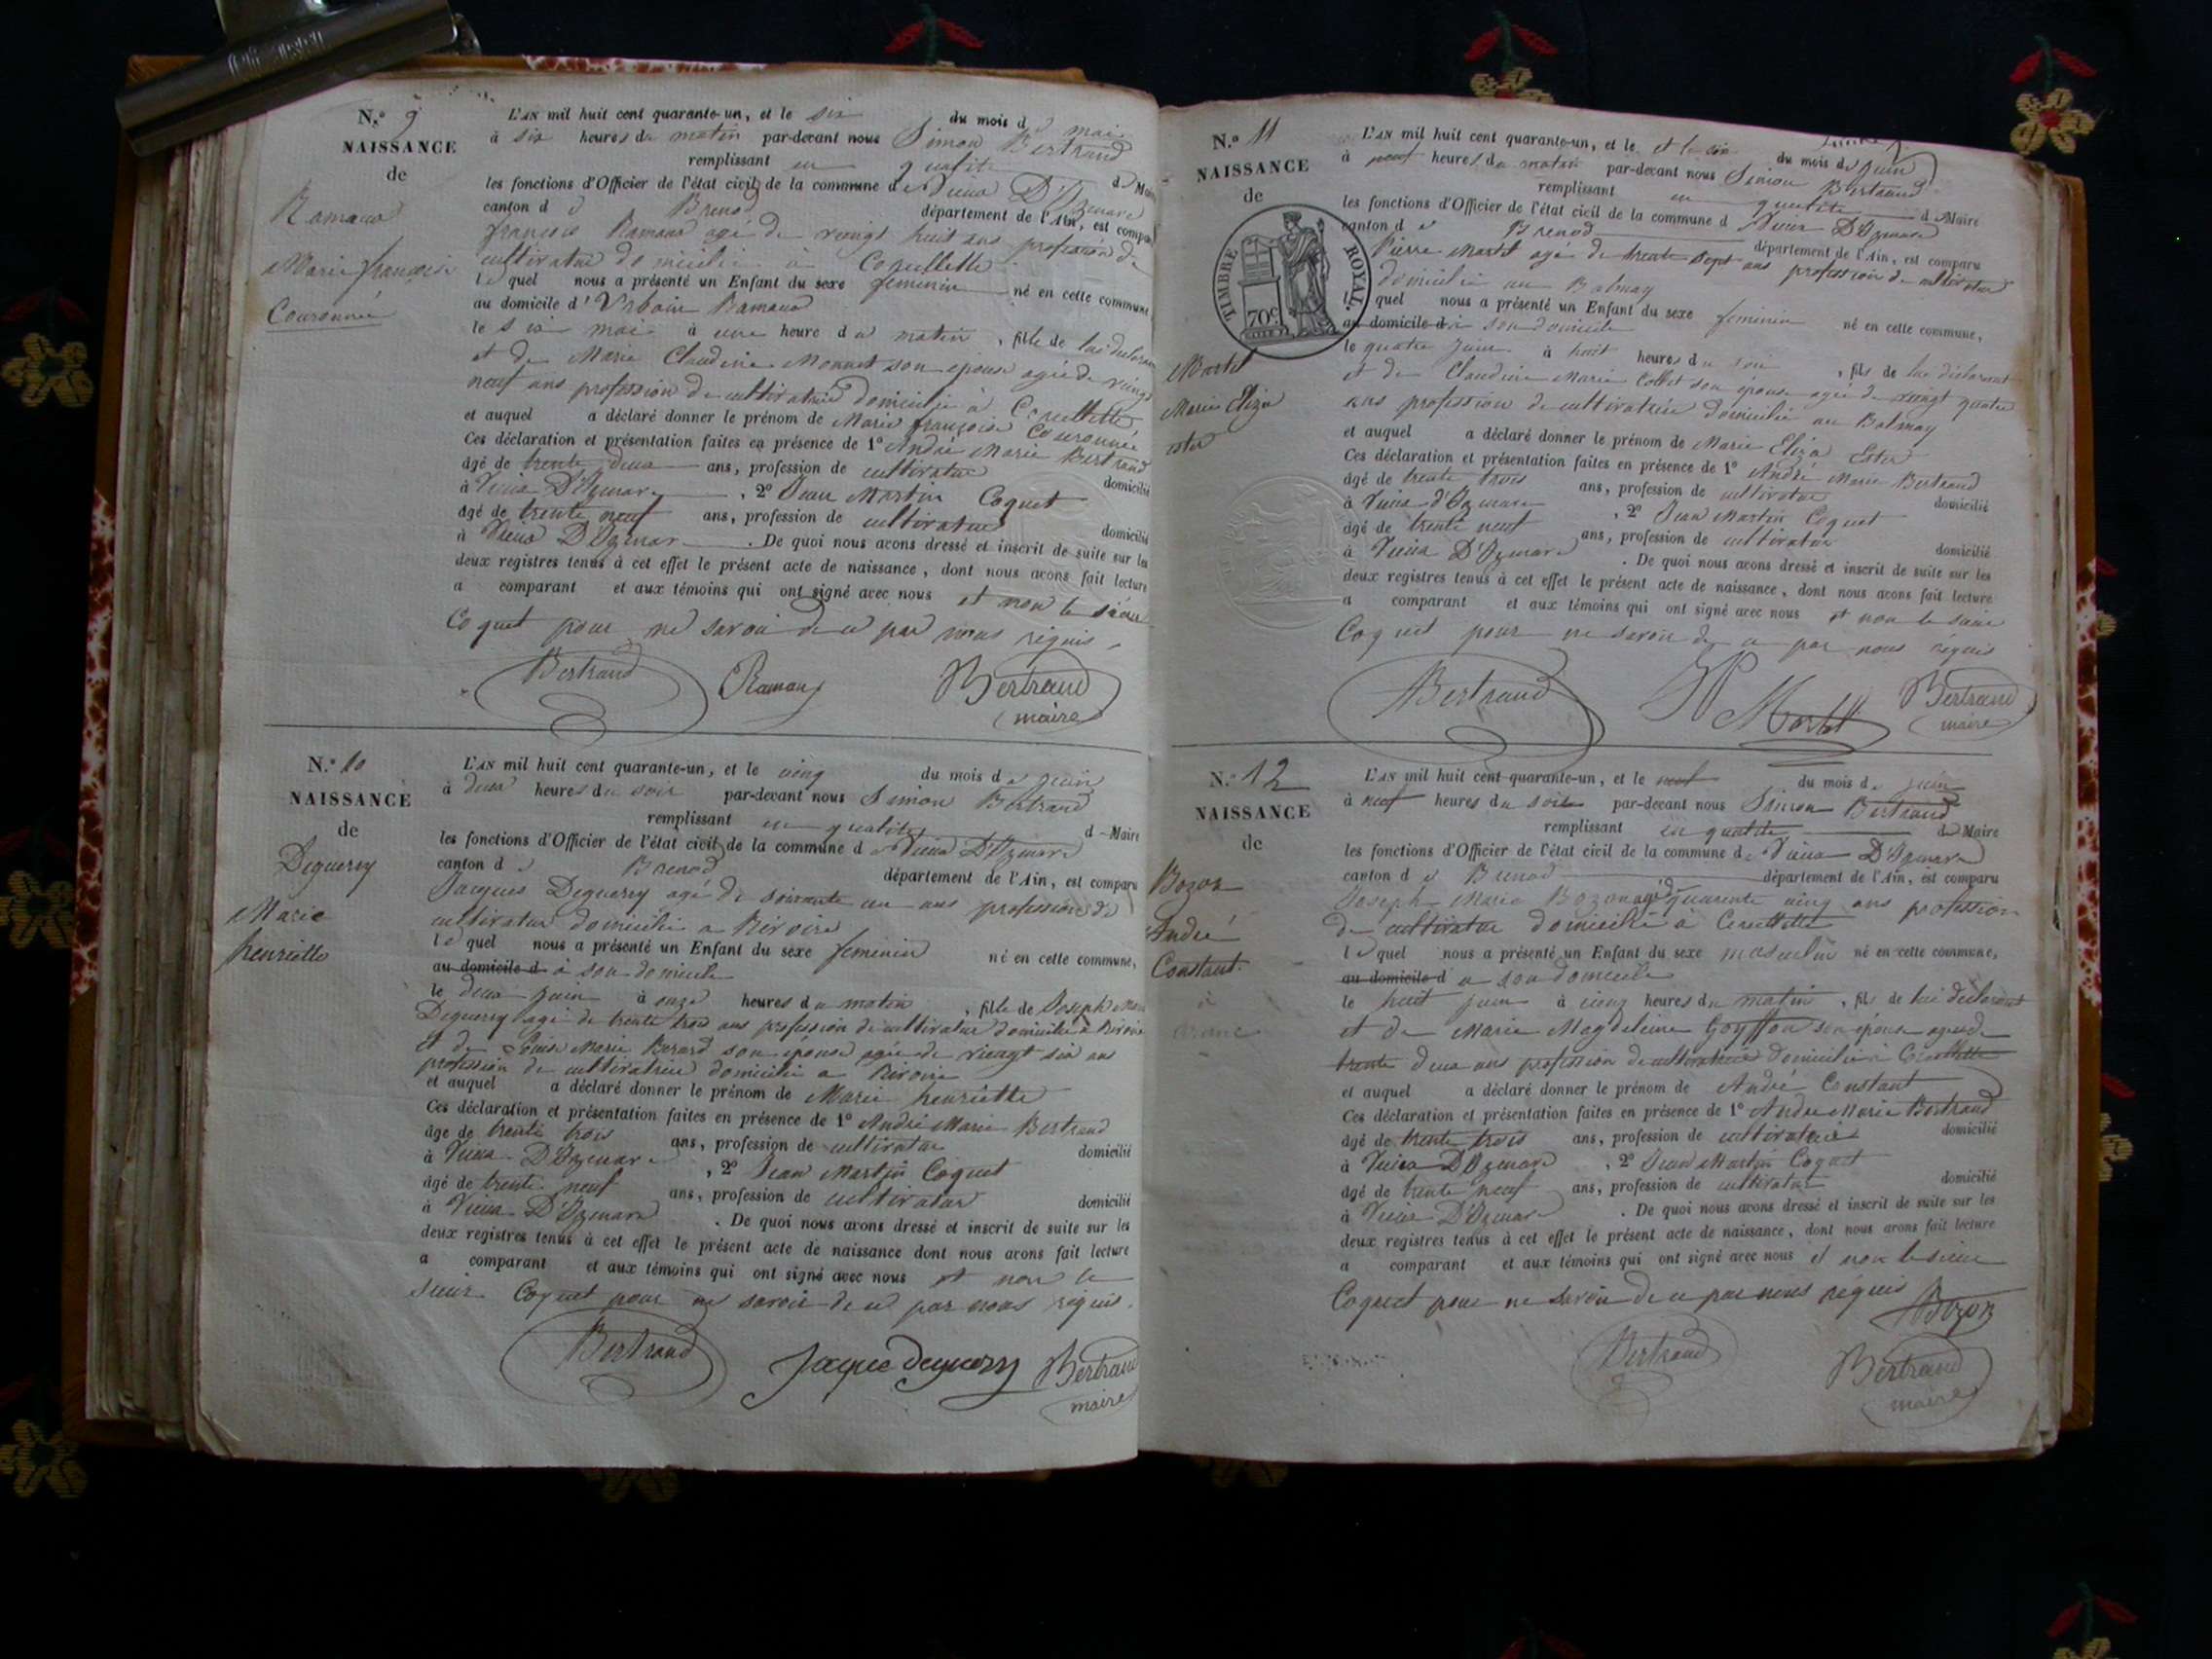 N.º 9
NAISSANCE
de
Ramaud
Marie françoise
Couronnée
L'AN mil huit cent quarante-un, et le six du mois de mai
à six heures du matin par-devant nous Simon Bertrand
remplissant en qualité de Maire
les fonctions d'Officier de l'état civil de la commune de Vieux D'Izenave
canton d Brenod département de l'Ain, est comparu
françois Ramaud agé de vingt huit ans profession de
cultivateur domicilié à
lequel nous a présenté un Enfant du sexe feminin né en cette commune,
au domicile d'Urbain Ramaud
le six mai à une heure du matin, fille de lui déclarant
et de Marie Claudine Monnet son épouse agée de vingt
neuf ans profession de cultivatrice domiciliée à
et auquel a déclaré donner le prénom de Marie françoise Couronnée
Ces déclaration et présentation faites en présence de 1º André Marie Bertrand
âgé de trente deux ans, profession de cultivateur domicilié
à Vieux D'Izenave, 2º Jean Martin Coquet
âgé de trente neuf ans, profession de cultivateur domicilié
à Vieux D'Izenave. De quoi nous avons dressé et inscrit de suite sur les
deux registres tenus à cet effet le présent acte de naissance, dont nous avons fait lecture
a comparant et aux témoins qui ont signé avec nous et non le sieur
Coquet pour ne savoir de ce par nous réquis
Bertrand Ramaud Bertrand
maire
N.º 10
NAISSANCE
de
Deguerry
Marie
henriette
L'AN mil huit cent quarante-un, et le cinq du mois de juin
à deux heures du soir par-devant nous Simon Bertrand
remplissant en qualité de Maire
les fonctions d'Officier de l'état civil de la commune de Vieux D'Izenave
canton d Brenod département de l'Ain, est comparu
Jacques Deguerry agé de soixante un ans profession de
cultivateur domicilié a Rivoire
lequel nous a présenté un Enfant du sexe feminin né en cette commune,
au domicile d à son domicile
le deux juin à onze heures du matin, fille de Joseph Marie
Deguerry agé de trente trois ans profession de cultivateur domicilié à Rivoire
et de Louise Marie Berard son épouse agée de vingt six ans
profession de cultivatrice domicilié a Rivoire
et auquel a déclaré donner le prénom de Marie henriette
Ces déclaration et présentation faites en présence de 1º André Marie Bertrand
âgé de trente trois ans, profession de cultivateur domicilié
à Vieux D'Izenave, 2º Jean Martin Coquet
âgé de trente neuf ans, profession de cultivateur domicilié
à Vieux D'Izenave. De quoi nous avons dressé et inscrit de suite sur les
deux registres tenus à cet effet le présent acte de naissance dont nous avons fait lecture
a comparant et aux témoins qui ont signé avec nous et non le
sieur Coquet pour ne savoir de ce par nous réquis.
Bertrand Jacque deguerry Bertrand
maire
N.º 11
NAISSANCE
de
TIMBRE ROYAL.
70c
Martel
Marie Eliza
ester
L'AN mil huit cent quarante-un, et le et le six du mois de juin
à neuf heures du matin par-devant nous Simon Bertrand
remplissant en qualité de Maire
les fonctions d'Officier de l'état civil de la commune d Vieux D'Izenave
canton d Brenod département de l'Ain, est comparu
Pierre Martel agé de trente sept ans profession de cultivateur
domicilié au Balmay
lequel nous a présenté un Enfant du sexe feminin né en cette commune,
au domicile d à son domicile
le quatre juin à huit heures du soir, fils de lui déclarant
et de Claudine Marie Collet son épouse agée de vingt quatre
ans profession de cultivatrice domicilié au Balmay
et auquel a déclaré donner le prénom de Marie Eliza Ester
Ces déclaration et présentation faites en présence de 1º André Marie Bertrand
âgé de trente trois ans, profession de cultivateur domicilié
à Vieux d'Izenave, 2º Jean Martin Coquet
âgé de trente neuf ans, profession de cultivateur domicilié
à Vieux D'Izenave. De quoi nous avons dressé et inscrit de suite sur les
deux registres tenus à cet effet le présent acte de naissance, dont nous avons fait lecture
a comparant et aux témoins qui ont signé avec nous et non le sieur
Coquet pour ne savoir de ce par nous réquis
Bertrand P Martel Bertrand
maire
N.º 12
NAISSANCE
de
Bozon
André
Constant
L'AN mil huit cent quarante-un, et le neuf du mois de juin
à neuf heures du soir par-devant nous Simon Bertrand
remplissant en qualité de Maire
les fonctions d'Officier de l'état civil de la commune de Vieux D'Izenave
canton d Brenod département de l'Ain, est comparu
Joseph Marie Bozon agé de quarente cinq ans profession
de cultivateur domicilié à
lequel nous a présenté un Enfant du sexe masculin né en cette commune,
au domicile d a son domicile
le huit juin à cinq heures du matin, fils de lui déclarant
et de Marie Magdeleine Goyffon son épouse agée de
trente deux ans profession de cultivatrice domiciliée à
et auquel a déclaré donner le prénom de André Constant
Ces déclaration et présentation faites en présence de 1º André Marie Bertrand
âgé de trente trois ans, profession de cultivateur domicilié
à Vieux D'Izenave, 2º Jean Martin Coquet
âgé de trente neuf ans, profession de cultivateur domicilié
à Vieux D'Izenave. De quoi nous avons dressé et inscrit de suite sur les
deux registres tenus à cet effet le présent acte de naissance, dont nous avons fait lecture
a comparant et aux témoins qui ont signé avec nous et non le sieur
Coquet pour ne savoir de ce par nous réquis Bozon
Bertrand Bertrand
maire